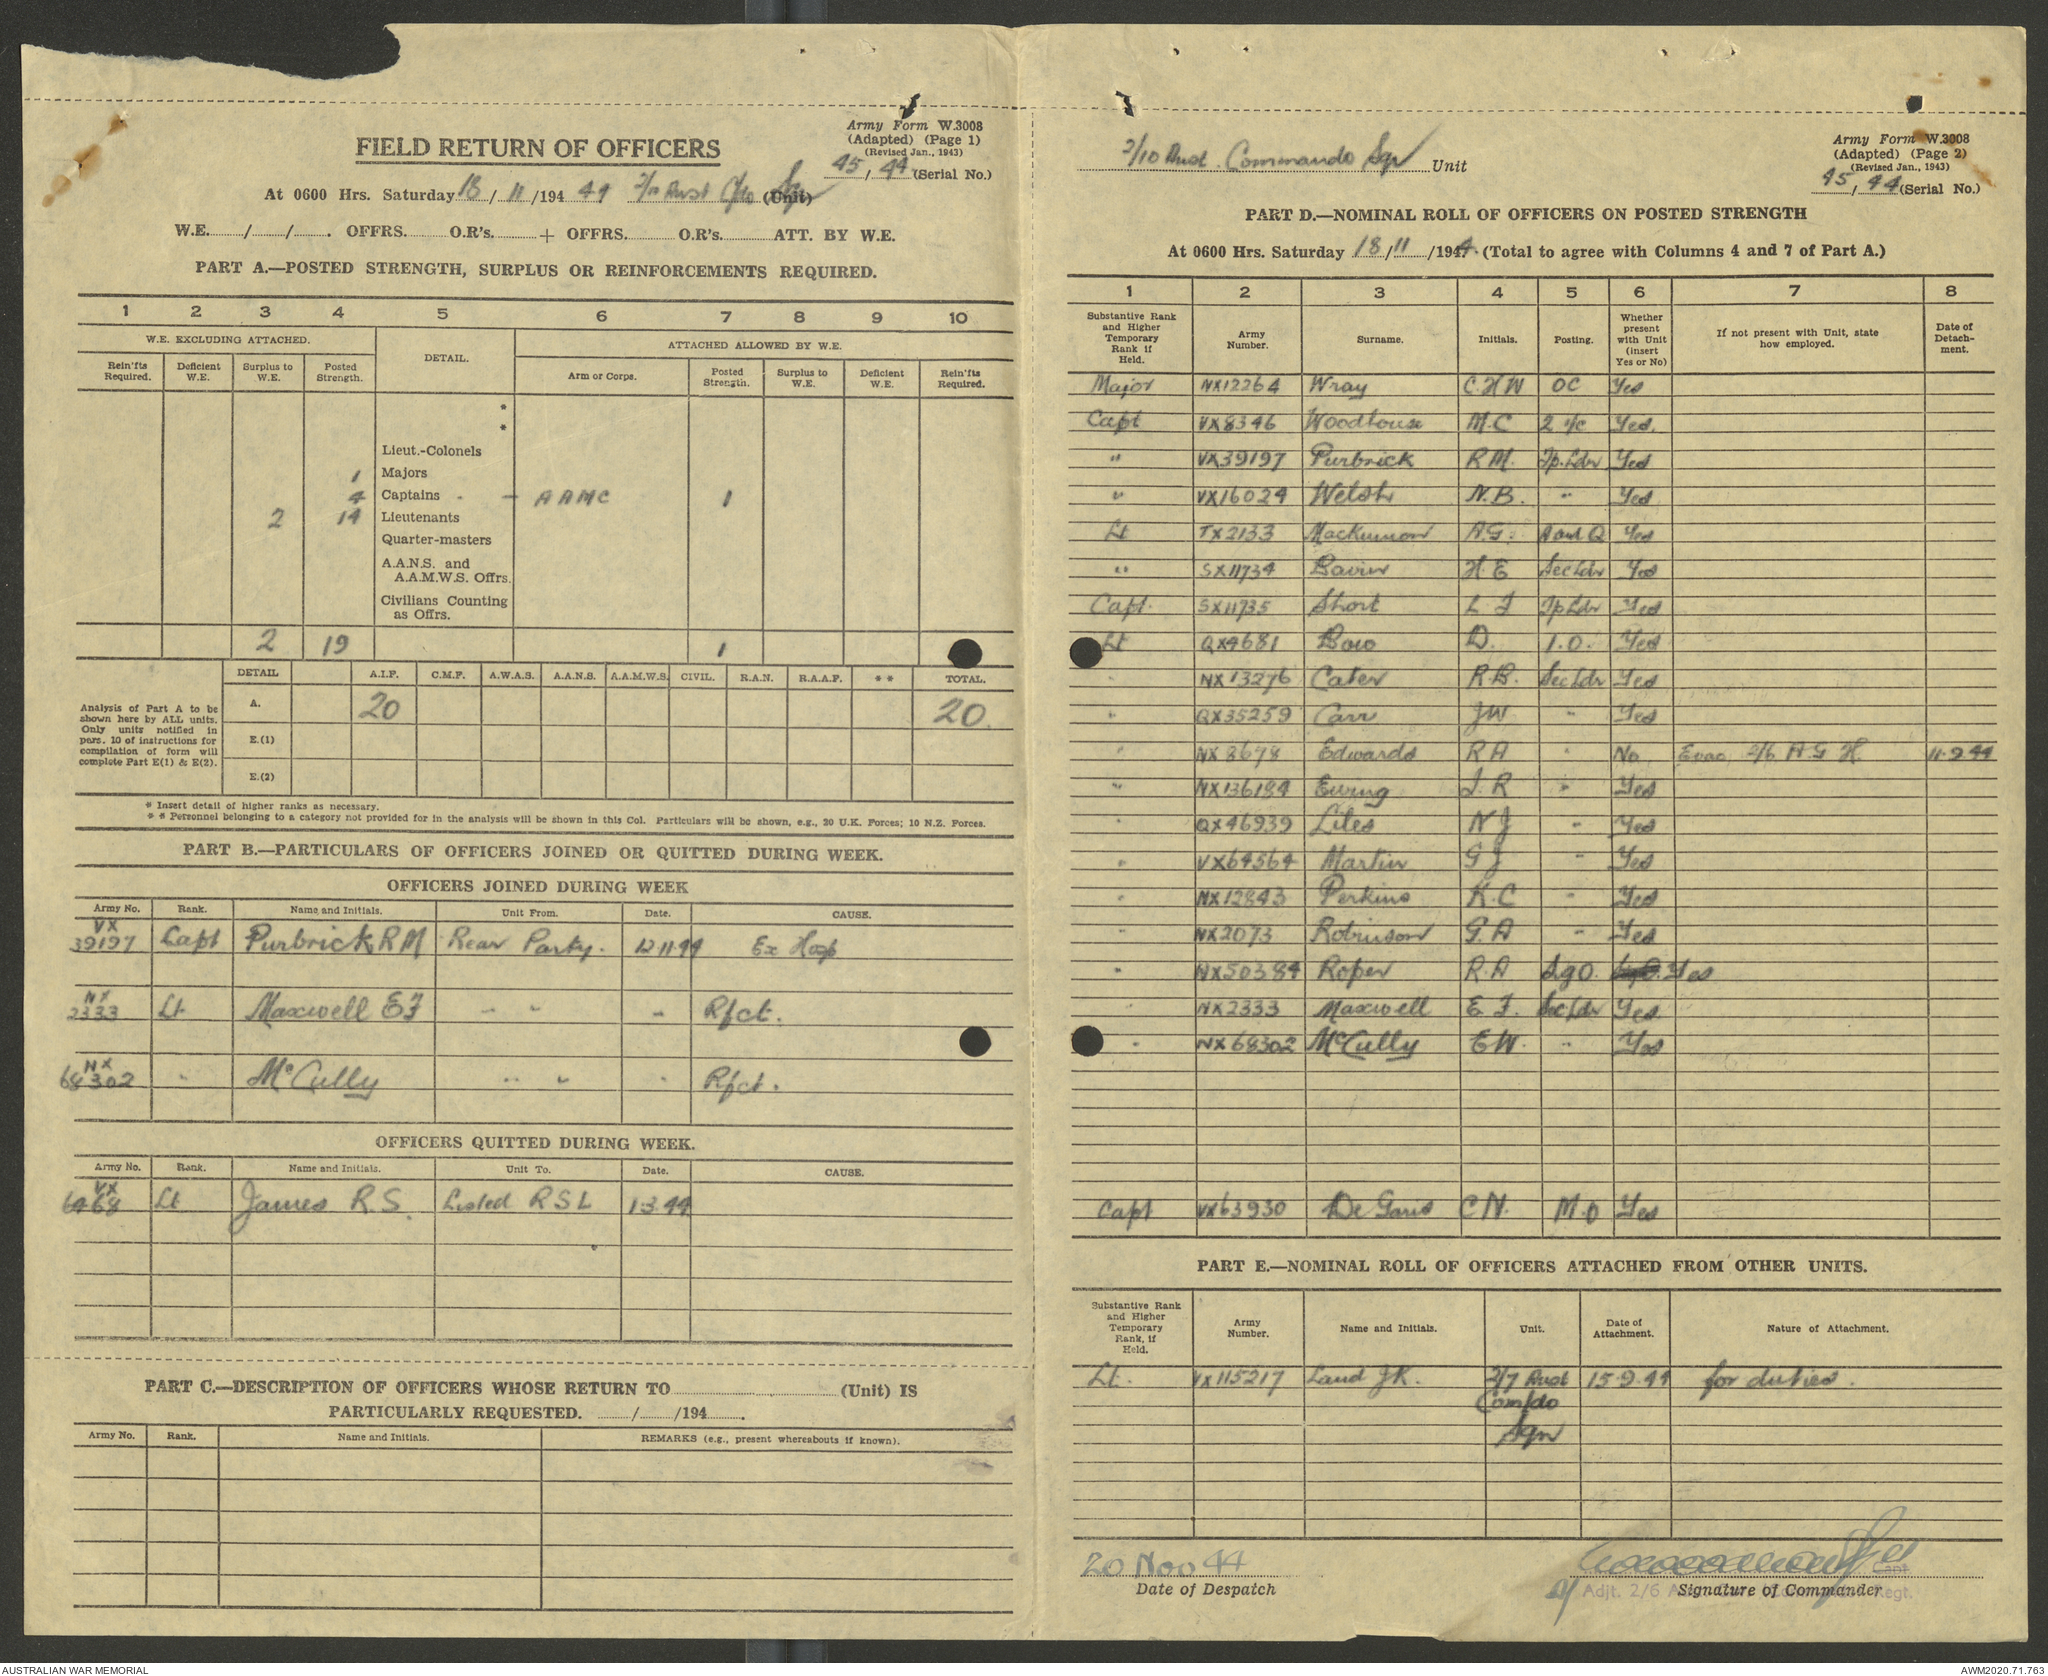 Army Form W.3008
(Adapted) (Page 1)
(Revised Jan., 1943)
45 / 44 (Serial No.)
FIELD RETURN OF OFFICERS
At 0600 Hrs. Saturday 18 / 11 /194 44 2/10 Aust C/do Sqn (Unit)
W.E. / / . OFFRS. O.R's. + OFFRS. O.R's. ATT. BY W.E.
PART A.—POSTED STRENGTH, SURPLUS OR REINFORCEMENTS REQUIRED.
1 2 3 4 5 6 7 8 9 10
W.E. EXCLUDING ATTACHED. DETAIL. ATTACHED ALLOWED BY W.E.
Rein'fts Required. Deficient W.E. Surplus to W.E. Posted Strength. Arm or Corps. Posted Strength. Surplus to W.E. Deficient W.E. Rein'fts Required.
*
*
Lieut.-Colonels
1 Majors
4 Captains - - AAMC 1
2 14 Lieutenants
Quarter-masters
A.A.N.S. and
A.A.M.W.S. Offrs.
Civilians Counting
as Offrs.
2 19 1
Analysis of Part A to be shown here by ALL units. Only units notified in pars. 10 of instructions for compilation of form will complete Part E(1) & E(2).
DETAIL A.I.F. C.M.F. A.W.A.S. A.A.N.S. A.A.M.W.S. CIVIL. R.A.N. R.A.A.F. * * TOTAL.
A. 20 20.
E.(1)
E.(2)
* Insert detail of higher ranks as necessary.
* * Personnel belonging to a category not provided for in the analysis will be shown in this Col. Particulars will be shown, e.g., 20 U.K. Forces; 10 N.Z. Forces.
PART B.—PARTICULARS OF OFFICERS JOINED OR QUITTED DURING WEEK.
OFFICERS JOINED DURING WEEK
Army No. Rank. Name and Initials. Unit From. Date. CAUSE.
VX 39197 Capt Purbrick R M Rear Party. 12.11.44 Ex Hosp
NX 2333 Lt Maxwell E F " " " Rfct.
NX 68302 " McCully " " " Rfct.
OFFICERS QUITTED DURING WEEK.
Army No. Rank. Name and Initials. Unit To. Date. CAUSE.
VX 6468 Lt James R.S. Listed R S L 13.44
PART C.—DESCRIPTION OF OFFICERS WHOSE RETURN TO (Unit) IS
PARTICULARLY REQUESTED. / /194 .
Army No. Rank. Name and Initials. REMARKS (e.g., present whereabouts if known).
2/10 Aust. Commando Sqn Unit
Army Form W.3008
(Adapted) (Page 2)
(Revised Jan., 1943)
45 / 44 (Serial No.)
PART D.—NOMINAL ROLL OF OFFICERS ON POSTED STRENGTH
At 0600 Hrs. Saturday 18 / 11 /1944. (Total to agree with Columns 4 and 7 of Part A.)
1 2 3 4 5 6 7 8
Substantive Rank and Higher Temporary Rank if Held. Army Number. Surname. Initials. Posting. Whether present with Unit (insert Yes or No) If not present with Unit, state how employed. Date of Detachment.
Major NX12264 Wray C.H W OC Yes
Capt VX8346 Woodhouse M.C 2 i/c Yes.
" VX39197 Purbrick R M. Tp.Ldr Yes
" VX16024 Welsh N.B. " Yes
Lt TX2133 Mackinnon A.G. A and Q Yes
" SX11734 Bavin H E Sec Ldr Yes
Capt. SX11735 Short L F Tp Ldr Yes
Lt QX4681 Bow D. I.O. Yes
" NX13276 Cater R.B. Sec Ldr Yes
" QX35259 Carr J W " Yes
" NX8678 Edwards R A " No Evac 2/6 A G H 11.9.44
" NX136184 Ewing J. R " Yes
" QX46939 Liles N J " Yes
" VX64564 Martin G J " Yes
" NX12843 Perkins K. C " Yes
" NX2073 Robinson G. A " Yes
" NX50384 Roper R. A Sg O. Yes
" NX2333 Maxwell E. F. Sec Ldr Yes
" NX68302 McCully E W. " Yes
Capt VX63930 De Garis C N. M.O Yes
PART E.—NOMINAL ROLL OF OFFICERS ATTACHED FROM OTHER UNITS.
Substantive Rank and Higher Temporary Rank, if Held. Army Number. Name and Initials. Unit. Date of Attachment. Nature of Attachment.
Lt. VX115217 Laud J K. 2/7 Aust 15.9.44 for duties.
Com/do
Sqn
20 Nov 44
Date of Despatch
Capt
Signature of Commander
Adjt. 2/6 Regt.
AUSTRALIAN WAR MEMORIAL
AWM2020.71.763